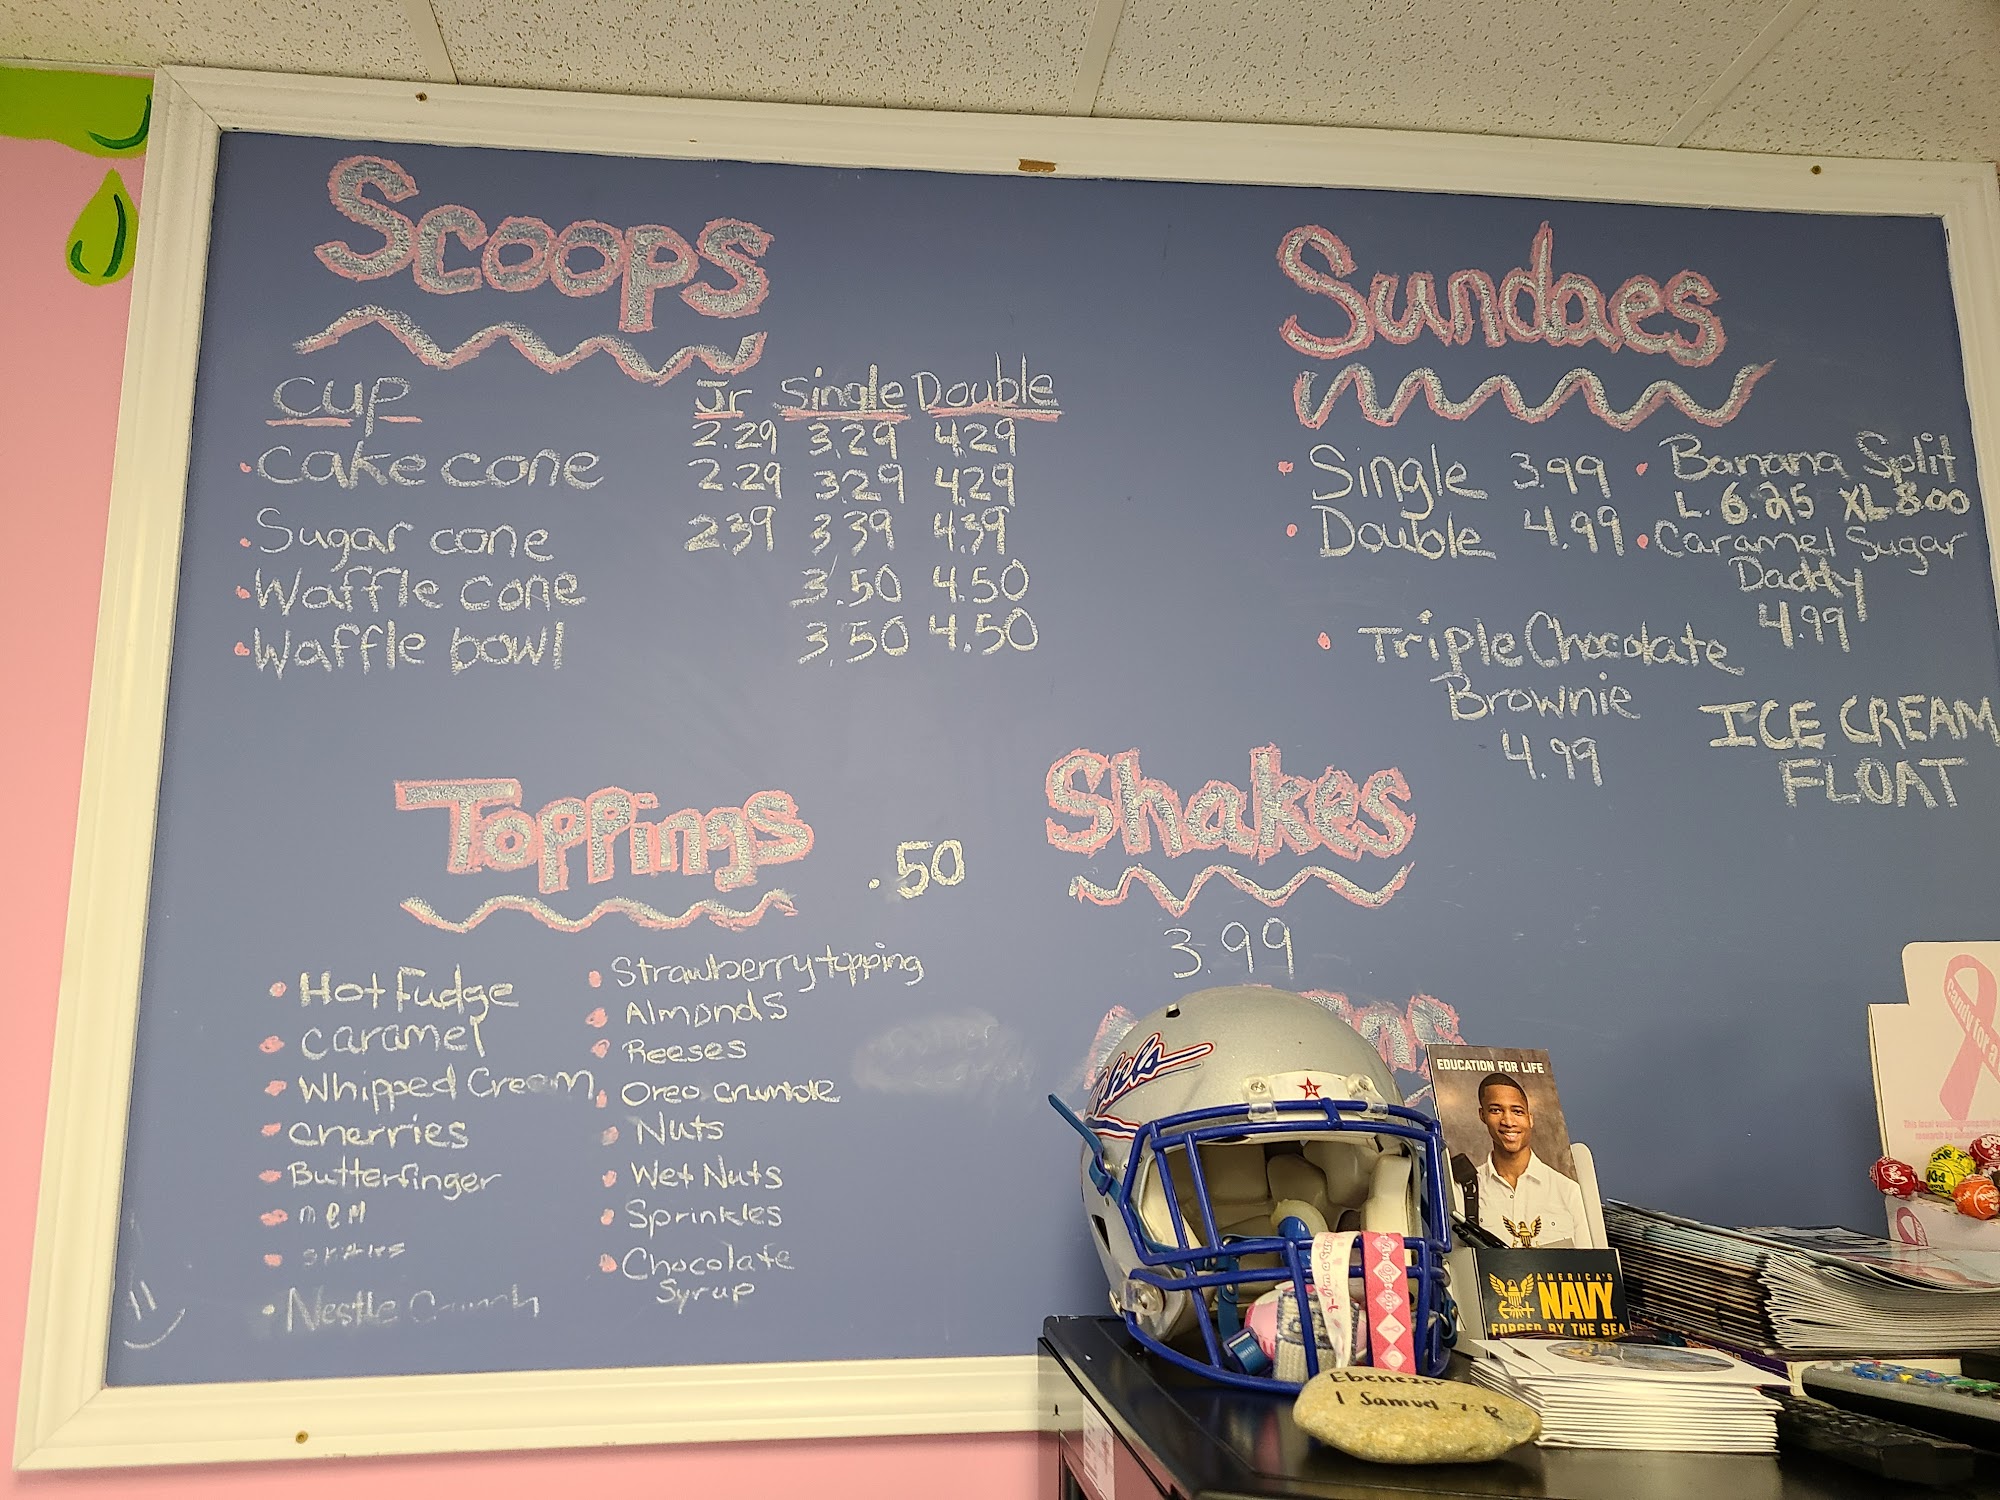 Scoops
cup Jr Single Double
2.29 3.29 4.29
Cake cone 2.29 3.29 4.29
Sugar cone 2.39 3.39 4.39
Waffle cone 3.50 4.50
Waffle bowl 3.50 4.50
Sundaes
Single 3.99
Double 4.99
Banana Split
L. 6.25 XL 8.00
Caramel Sugar
Daddy
4.99
Triple Chocolate
Brownie
4.99
ICE CREAM
FLOAT
Toppings .50
Hot Fudge
Caramel
Whipped Cream
Cherries
Butterfinger
M&M
Nestle Crunch
Strawberry topping
Almonds
Reeses
Oreo crumble
Nuts
Wet Nuts
Sprinkles
Chocolate
Syrup
Shakes
3.99
EDUCATION FOR LIFE
AMERICA'S
NAVY
FORGED BY THE SEA
Ebenezer
1 Samuel 7:12
Candy for a